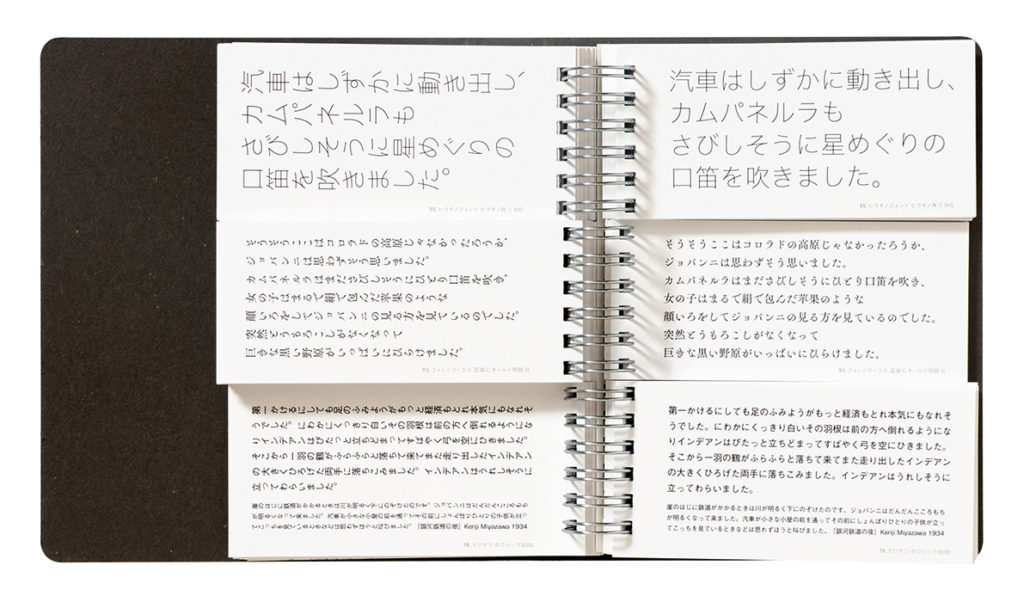 汽車はしずかに動き出し、
カムパネルラも
さびしそうに星めぐりの
口笛を吹きました。
05. ヒラギノフォント ヒラギノ角ゴ W0
汽車はしずかに動き出し、
カムパネルラも
さびしそうに星めぐりの
口笛を吹きました。
05. ヒラギノフォント ヒラギノ角ゴ W0
そうそうここはコロラドの高原じゃなかったろうか、
ジョバンニは思わずそう思いました。
カムパネルラはまださびしそうにひとり口笛を吹き、
女の子はまるで絹で包んだ苹果のような
顔いろをしてジョバンニの見る方を見ているのでした。
突然とうもろこしがなくなって
巨きな黒い野原がいっぱいにひらけました。
93. フォントワークス 筑紫Cオールド明朝 R
そうそうここはコロラドの高原じゃなかったろうか、
ジョバンニは思わずそう思いました。
カムパネルラはまださびしそうにひとり口笛を吹き、
女の子はまるで絹で包んだ苹果のような
顔いろをしてジョバンニの見る方を見ているのでした。
突然とうもろこしがなくなって
巨きな黒い野原がいっぱいにひらけました。
93. フォントワークス 筑紫Cオールド明朝 R
第一かけるにしても足のふみようがもっと経済もとれ本気にもなれそ
うでした。にわかにくっきり白いその羽根は前の方へ倒れるようにな
りインデアンはぴたっと立ちどまってすばやく弓を空にひきました。
そこから一羽の鶴がふらふらと落ちて来てまた走り出したインデアン
の大きくひろげた両手に落ちこみました。インデアンはうれしそうに
立ってわらいました。
崖のはじに鉄道がかかるときは川が明るく下にのぞけたのです。ジョバンニはだんだんこころもち
が明るくなって来ました。汽車が小さな小屋の前を通ってその前にしょんぼりひとりの子供が立っ
てこっちを見ているときなどは思わずほうと叫びました。『銀河鉄道の夜』Kenji Miyazawa 1934
18. モリサワ 中ゴシックBBB
第一かけるにしても足のふみようがもっと経済もとれ本気にもなれそ
うでした。にわかにくっきり白いその羽根は前の方へ倒れるようにな
りインデアンはぴたっと立ちどまってすばやく弓を空にひきました。
そこから一羽の鶴がふらふらと落ちて来てまた走り出したインデアン
の大きくひろげた両手に落ちこみました。インデアンはうれしそうに
立ってわらいました。
崖のはじに鉄道がかかるときは川が明るく下にのぞけたのです。ジョバンニはだんだんこころもち
が明るくなって来ました。汽車が小さな小屋の前を通ってその前にしょんぼりひとりの子供が立っ
てこっちを見ているときなどは思わずほうと叫びました。『銀河鉄道の夜』Kenji Miyazawa 1934
18. モリサワ 中ゴシックBBB